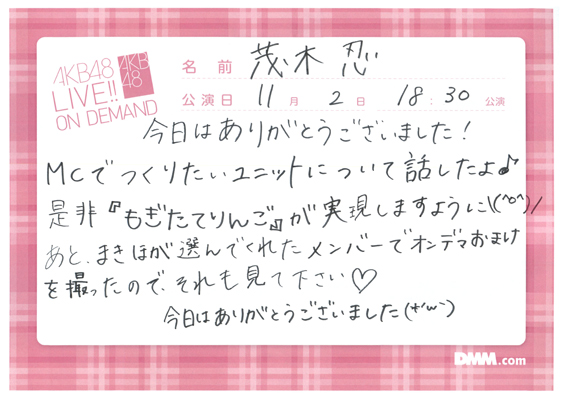 AKB48
LIVE!!
ON DEMAND
AKB
48
名前 茂木 忍
公演日 11月 2日 18:30 公演
今日はありがとうございました!
MCでつくりたいユニットについて話したよ♪
是非『もぎたてりんご』が実現しますように\(^o^)/
あと、まきほが選んでくれたメンバーでオンデマおまけ
を撮ったので、それも見て下さい♡
今日はありがとうございました(*'ω'`)
DMM.com